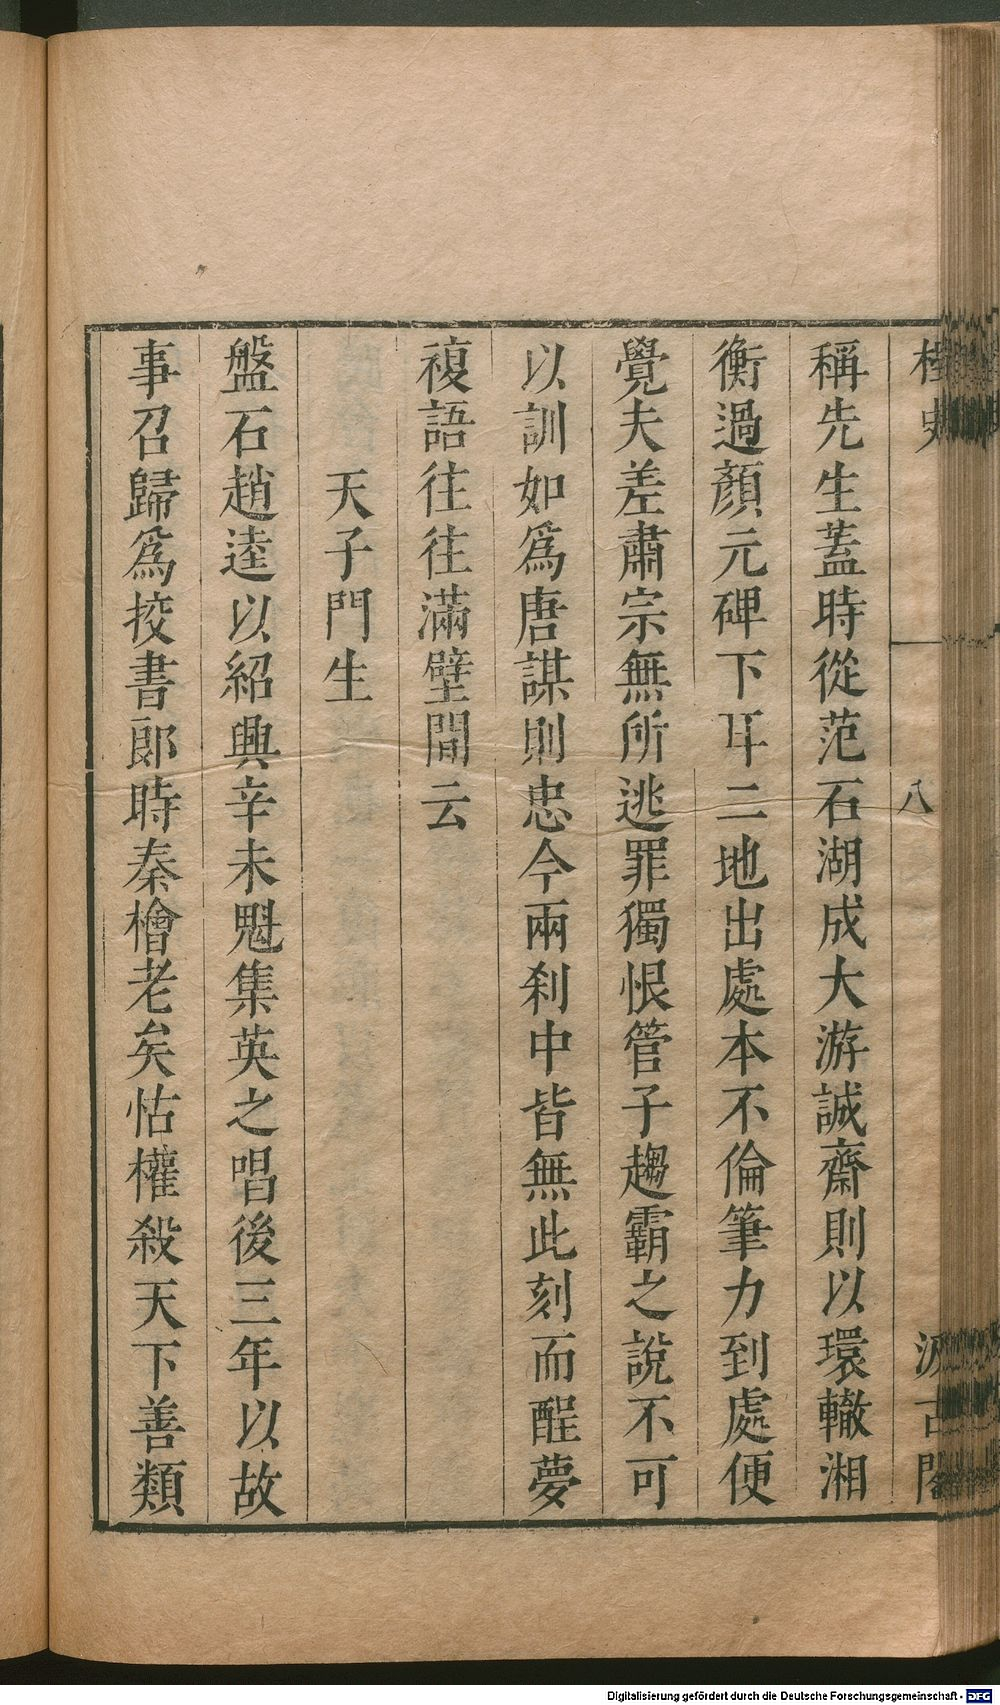 桯史 八 汲古閣
稱先生蓋時從范石湖成大游誠齋則以環轍湘
衡過顏元碑下耳二地出處本不倫筆力到處便
覺夫差肅宗無所逃罪獨恨管子趨霸之說不可
以訓如爲唐謀則忠今兩刹中皆無此刻而醒夢
複語往往滿壁間云
天子門生
盤石趙逵以紹興辛未魁集英之唱後三年以故
事召歸爲挍書郞時秦檜老矣怙權殺天下善類
Digitalisierung gefördert durch die Deutsche Forschungsgemeinschaft - DFG